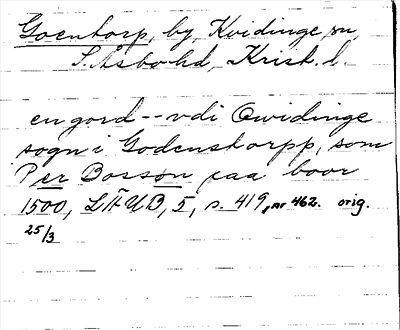 Goentorp, by, Kvidinge sn,
S. Åsbo hd, Krist. l.
en gord -- vdi Qwidinge
sogn i Godenstorpp, som
Per Bosson paa boor
1500, LÄUB, 5, s. 419, nr 462. orig.
25/3